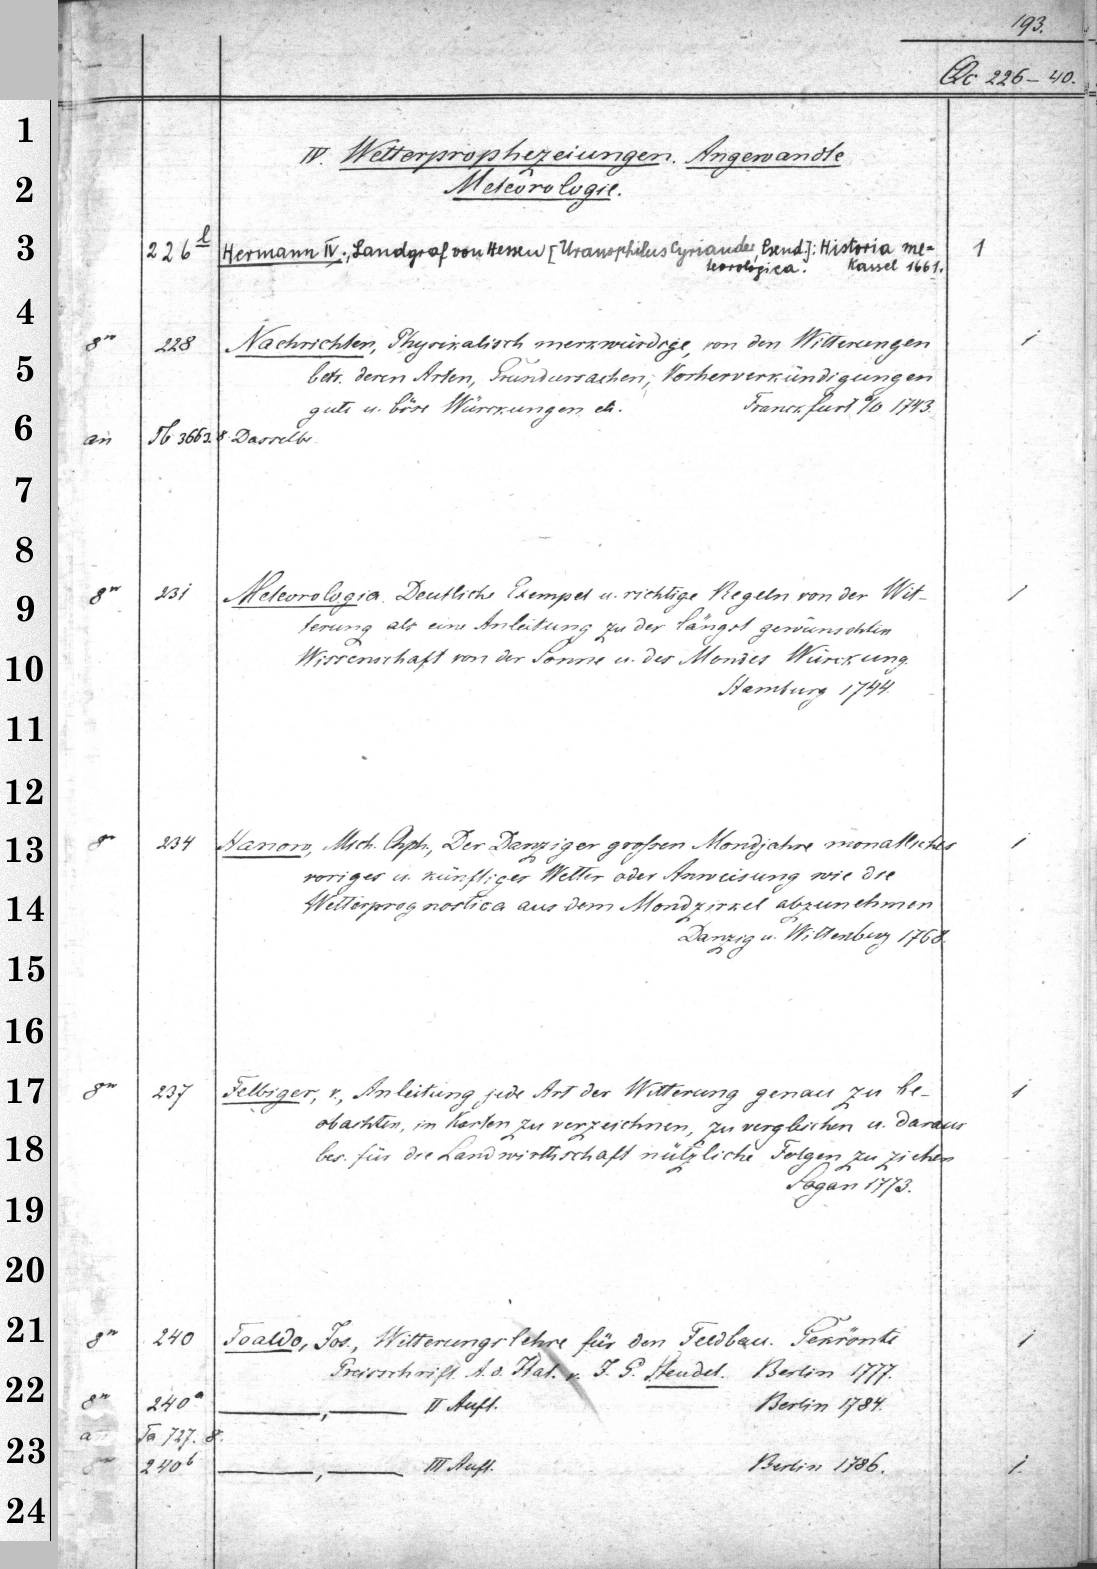 193.
Qc 226-40.
IV. Wetterprophezeiungen. Angewandte
Meteorologie.
226 l Hermann IV., Landgraf von Hessen [Uranophilus Cyriandes Pseud.]: Historia me= 1
teorologica. Kassel 1661.
8º 228 Nachrichten, Physikalisch merkwürdige, von den Witterungen 1
betr. deren Arten, Grundursachen, Vorherverkündigungen
gute u. böse Würckungen etc. Franckfurt a/O 1743.
an 3662. 8. Dasselbe.
8º 231 Meteorologia. Deutliche Exempel u. richtige Regeln von der Wit- 1
terung als eine Anleitung zu der längst gewünschten
Wissenschaft von der Sonne u. des Mondes Würckung.
Hamburg 1744
8º 234 Hanow, Mich. Chph., Der Danziger grossen Mondjahre monatliches 1
voriges u. künftiges Wetter oder Anweisung wie die
Wetterprognostica aus dem Mondzirkel abzunehmen
Danzig u. Wittenberg 1768.
8º 237 Felbiger, v., Anleitung jede Art der Witterung genau zu be- 1
obachten, in Karten zu verzeichnen, zu vergleichen u. daraus
bes. für die Landwirthschaft nützliche Folgen zu ziehen
Sagan 1773.
8º 240 Toaldo, Jos., Witterungslehre für den Feldbau. Gekrönte 1
Preisschrift. A. d. Ital. v. J. G. Steudel. Berlin 1777.
8º 240a ———, ——— II Aufl. Berlin 1784.
an Ta 727. 8.
8º 240b ———, ——— III Aufl. Berlin 1786. 1.
1
2
3
4
5
6
7
8
9
10
11
12
13
14
15
16
17
18
19
20
21
22
23
24